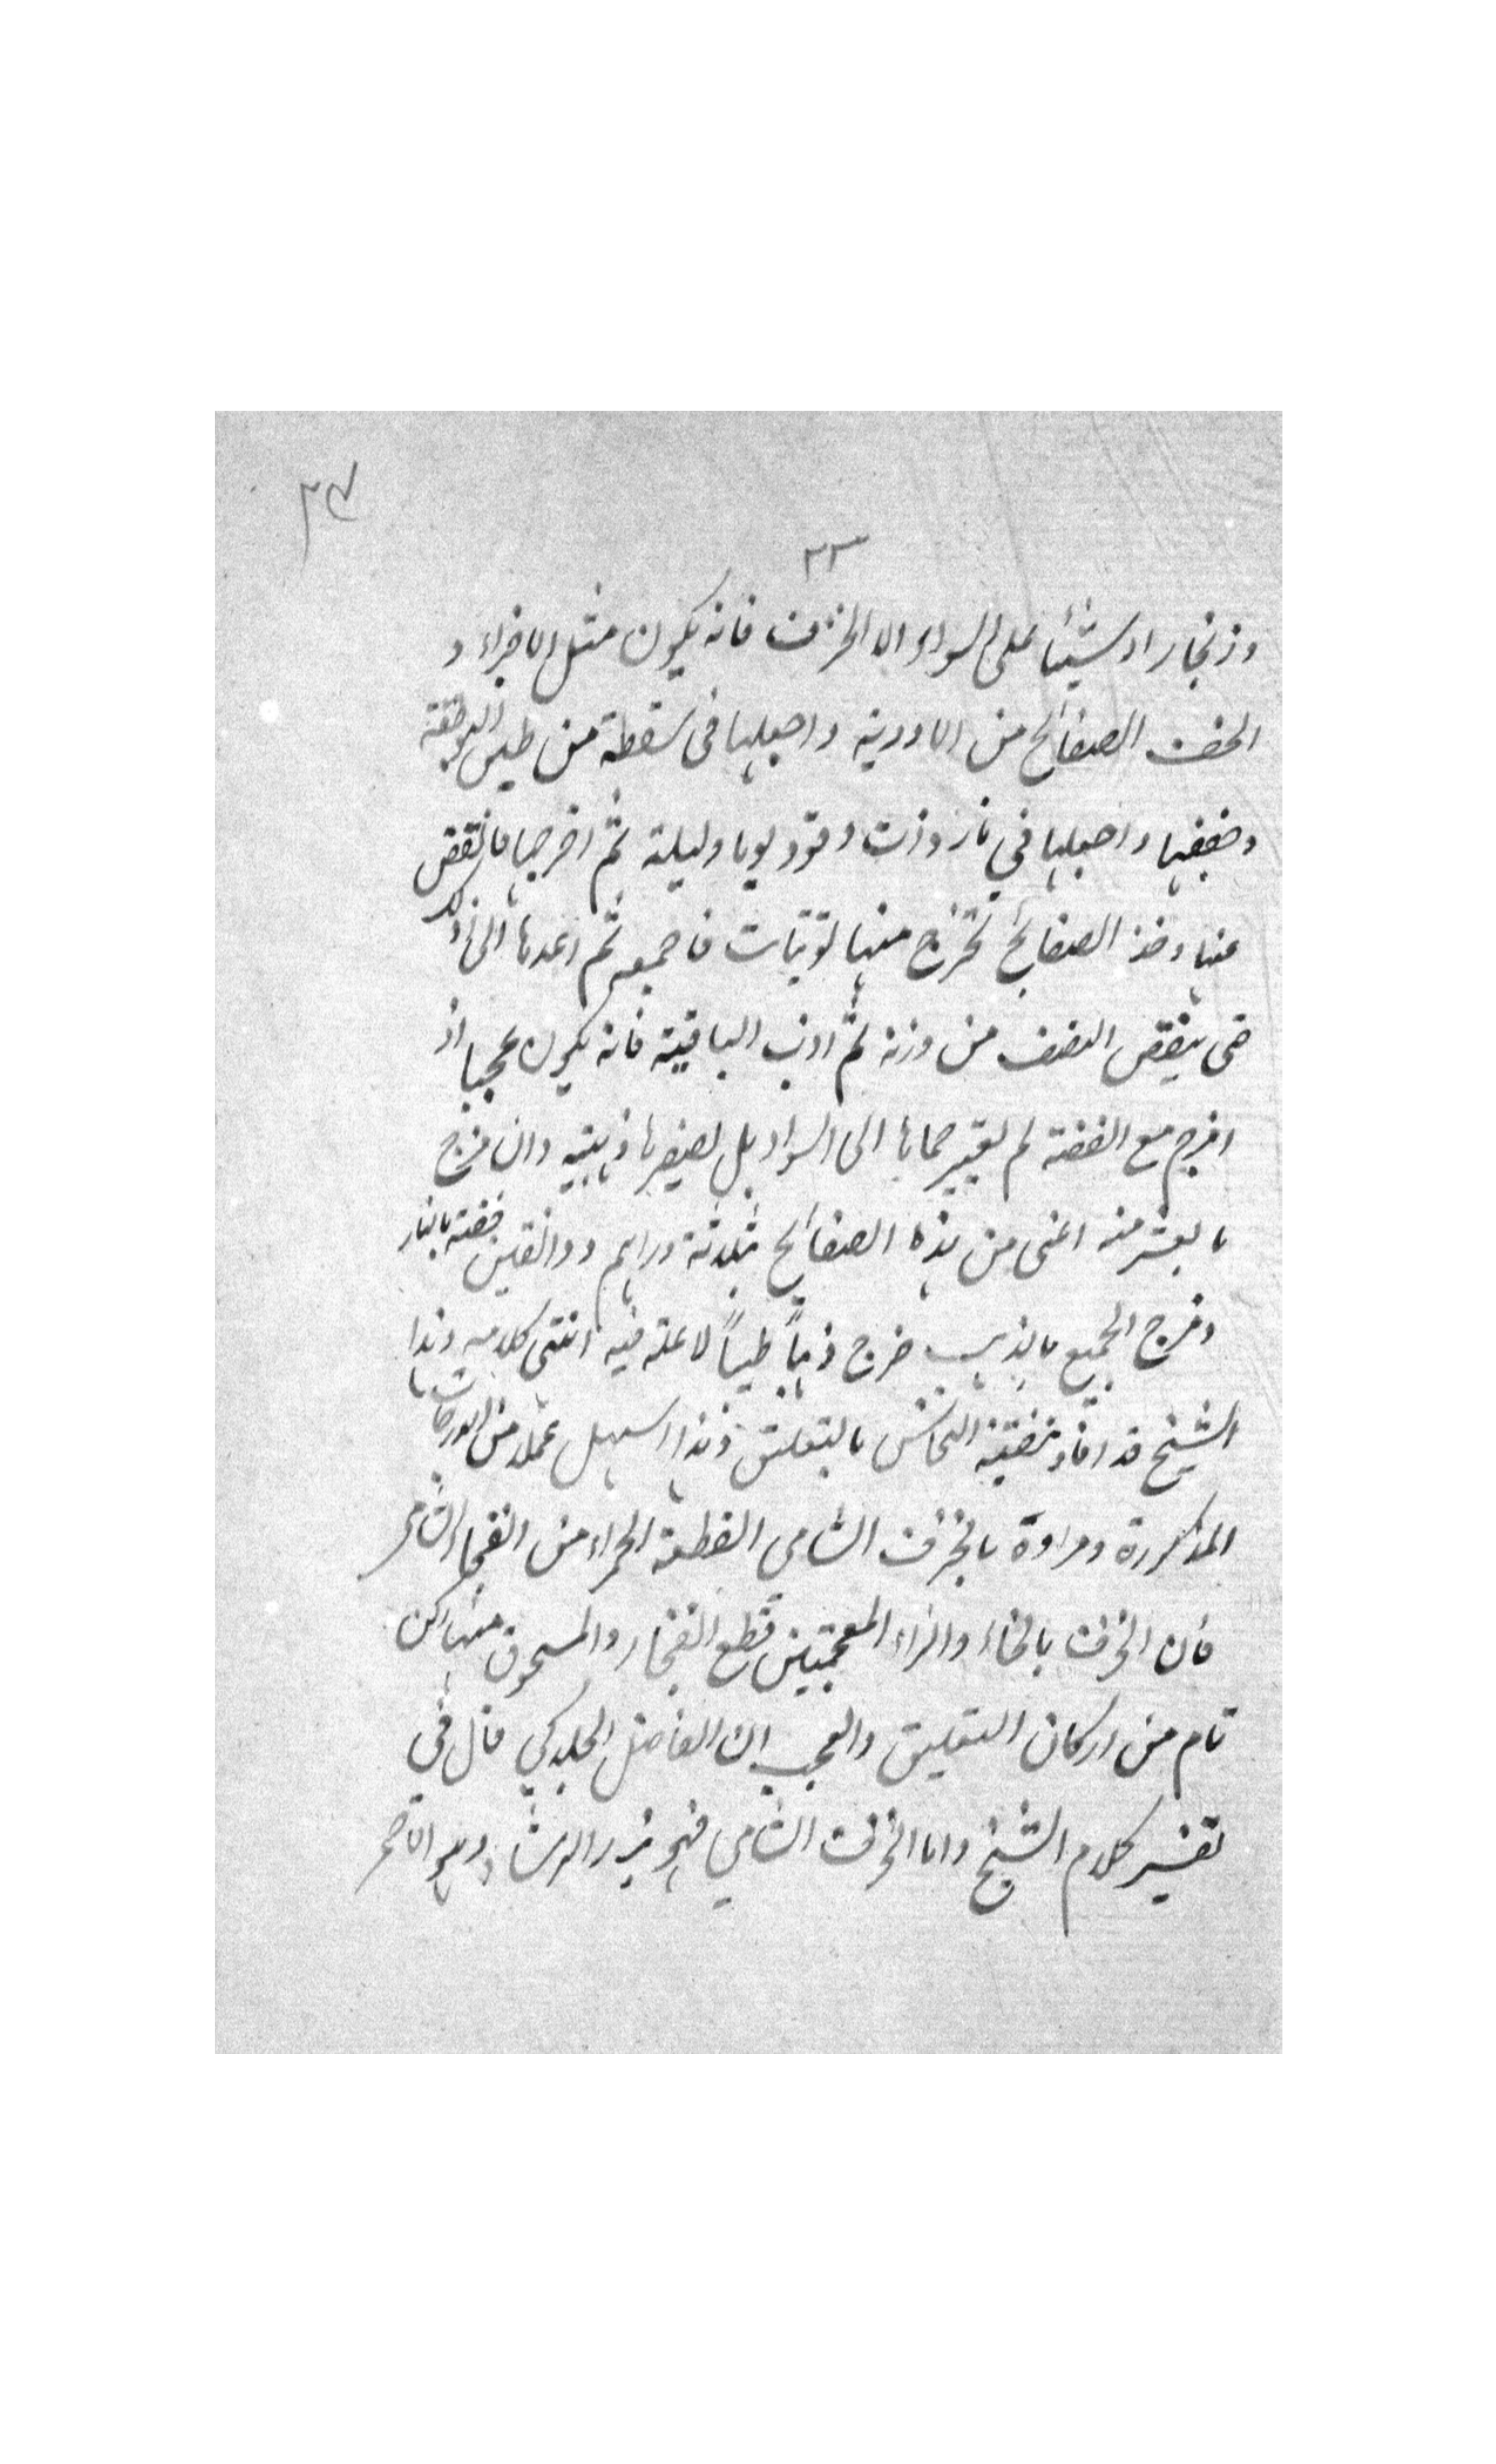 ٢٤
٢٣
وزنجار اوشيئا على السواء الا الخزف فانه يكون مثل الاجزاء و
الحف الصفائح من الادوية واجعلها في سقطة من طين البوطقة
وضففها واجعلها في نار وذت وقود يوما وليلة ثم اخرجها فانقض
عنها وخذ الصفائح تخرج منها توتيات فاجمعه ثم اعدها الى ذلك
حتى ينقص النصف من وزنه ثم اذب الباقية فانه يكون عجيبا اذ
امزج مع الفضة لم يغير حماها الى السواد بل يصيرها ذهبية وان مزج
بالعشر منه اعنى من هذه الصفائح بثلاثة دراهم ودانقين فضة بالنار
ومزج الجميع بالذهب خرج ذهباً طيباً لا علة فيه انتهى كلامه وهذا
الشيخ قد افاد تنقية النحاس بالتعليق وهذا اسهل عملا من التدرجات
المذكورة ومراده بالخزف الشامي القطعة الحمراء من الفخار الشامي
فان الخزف بالخاء والزاء المعجمتين قطع الفخار والمسحوق منها ركن
تام من اركان التعليق والعجب ان الفاضل الجلدكي قال في
تفسير كلام الشيخ واما الخزف الشامي فهو بزر الرشاد وهو الاحمر